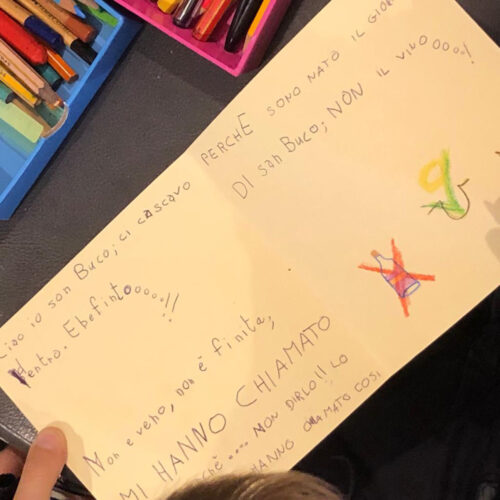 Ciao io son Buco; ci cascavo
dentro. Ebefintooooo!!
Non e vero, non è finita,
MI HANNO CHIAMATO
NON DIRLO!! LO
HANNO CHIAMATO COSI
PERCHE SONO NATO IL GIOR
DI san Buco; NON IL VINOoooo!